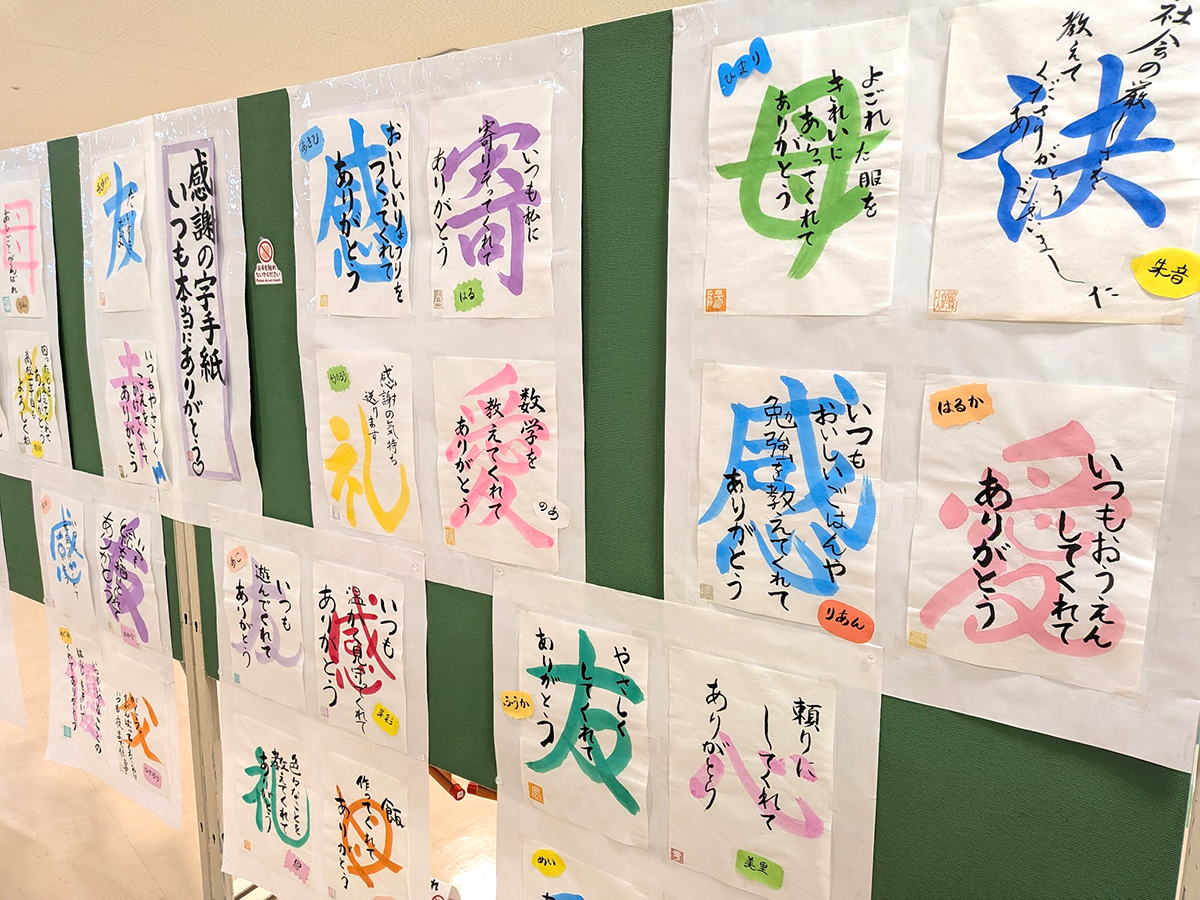 感謝の字手紙
いつも本当にありがとう♡
友
感
おいしいりょうりを
つくってくれて
ありがとう
あさひ
寄
いつも私に
寄りそってくれて
ありがとう
はる
母
よごれた服を
きれいに
あらってくれて
ありがとう
ひまり
社会の厳しさを
教えて
くださり
ありがとう
ございました
朱音
母
いつもやさしく
ありがとう
礼
感謝の気持ち
送ります
愛
数学を
教えてくれて
ありがとう
のあ
感
いつも
おいしいごはんや
勉強を教えてくれて
ありがとう
りあん
愛
いつもおうえん
してくれて
ありがとう
はるか
感
愛
いつも
遊んでくれて
ありがとう
感
いつも
温かく見守ってくれて
ありがとう
友
やさしく
してくれて
ありがとう
心
頼りに
してくれて
ありがとう
美里
父
礼
色々なことを
教えてくれて
ありがとう
飯
作ってくれて
ありがとう
めい